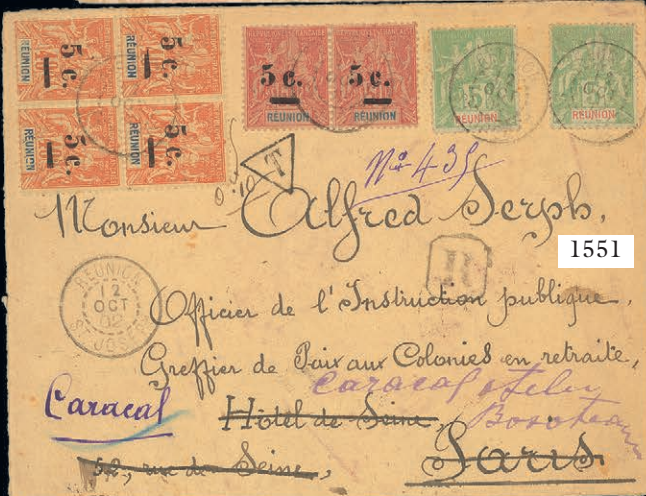 5 c.
RÉUNION
5 c.
RÉUNION
5 c.
RÉUNION
5 c.
RÉUNION
5 c.
RÉUNION
5 c.
RÉUNION
5
RÉUNION
RÉUNION
T
0.10
N° 435
Monsieur Alfred Serph,
1551
R
RÉUNION
12
OCT
02
ST JOSEPH
Officier de l'Instruction publique,
Greffier de Paix aux Colonies en retraite,
Caracal
Hôtel de Seine,
Caracal
Paris
52, rue de Seine,